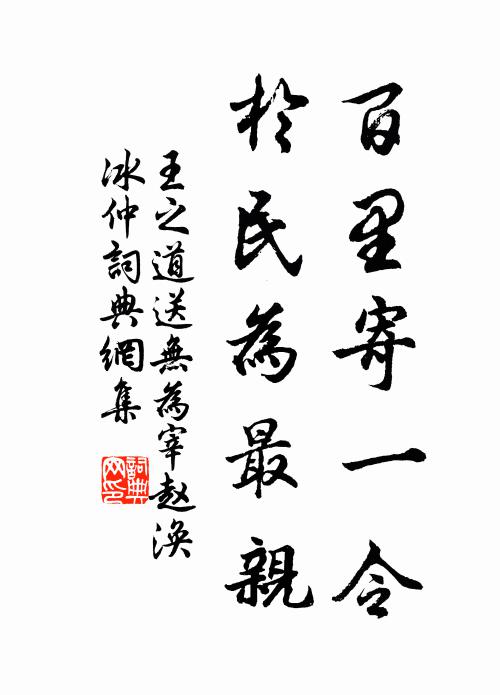 百里寄一令
於民為最親
王之道送無為宰赵渙
冰仲詞典網集
詞典
网印